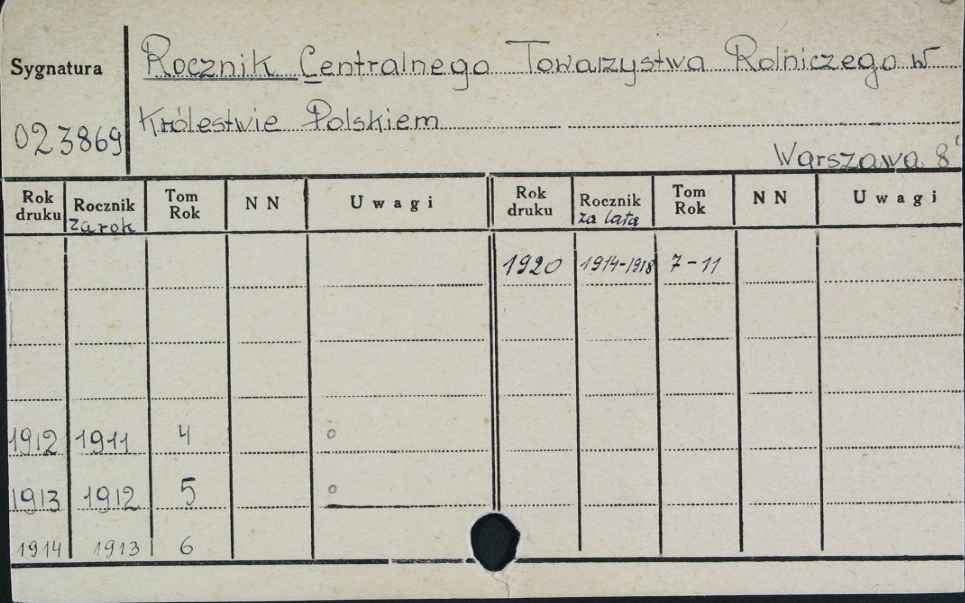 Sygnatura
Rocznik Centralnego Towarzystwa Rolniczego w
023869
Królestwie Polskiem
Warszawa 8°
Rok druku Rocznik za rok Tom Rok N N Uwagi Rok druku Rocznik za lata Tom Rok N N Uwagi
1920 1914-1918 7-11
1912 1911 4 o
1913 1912 5 o
1914 1913 6